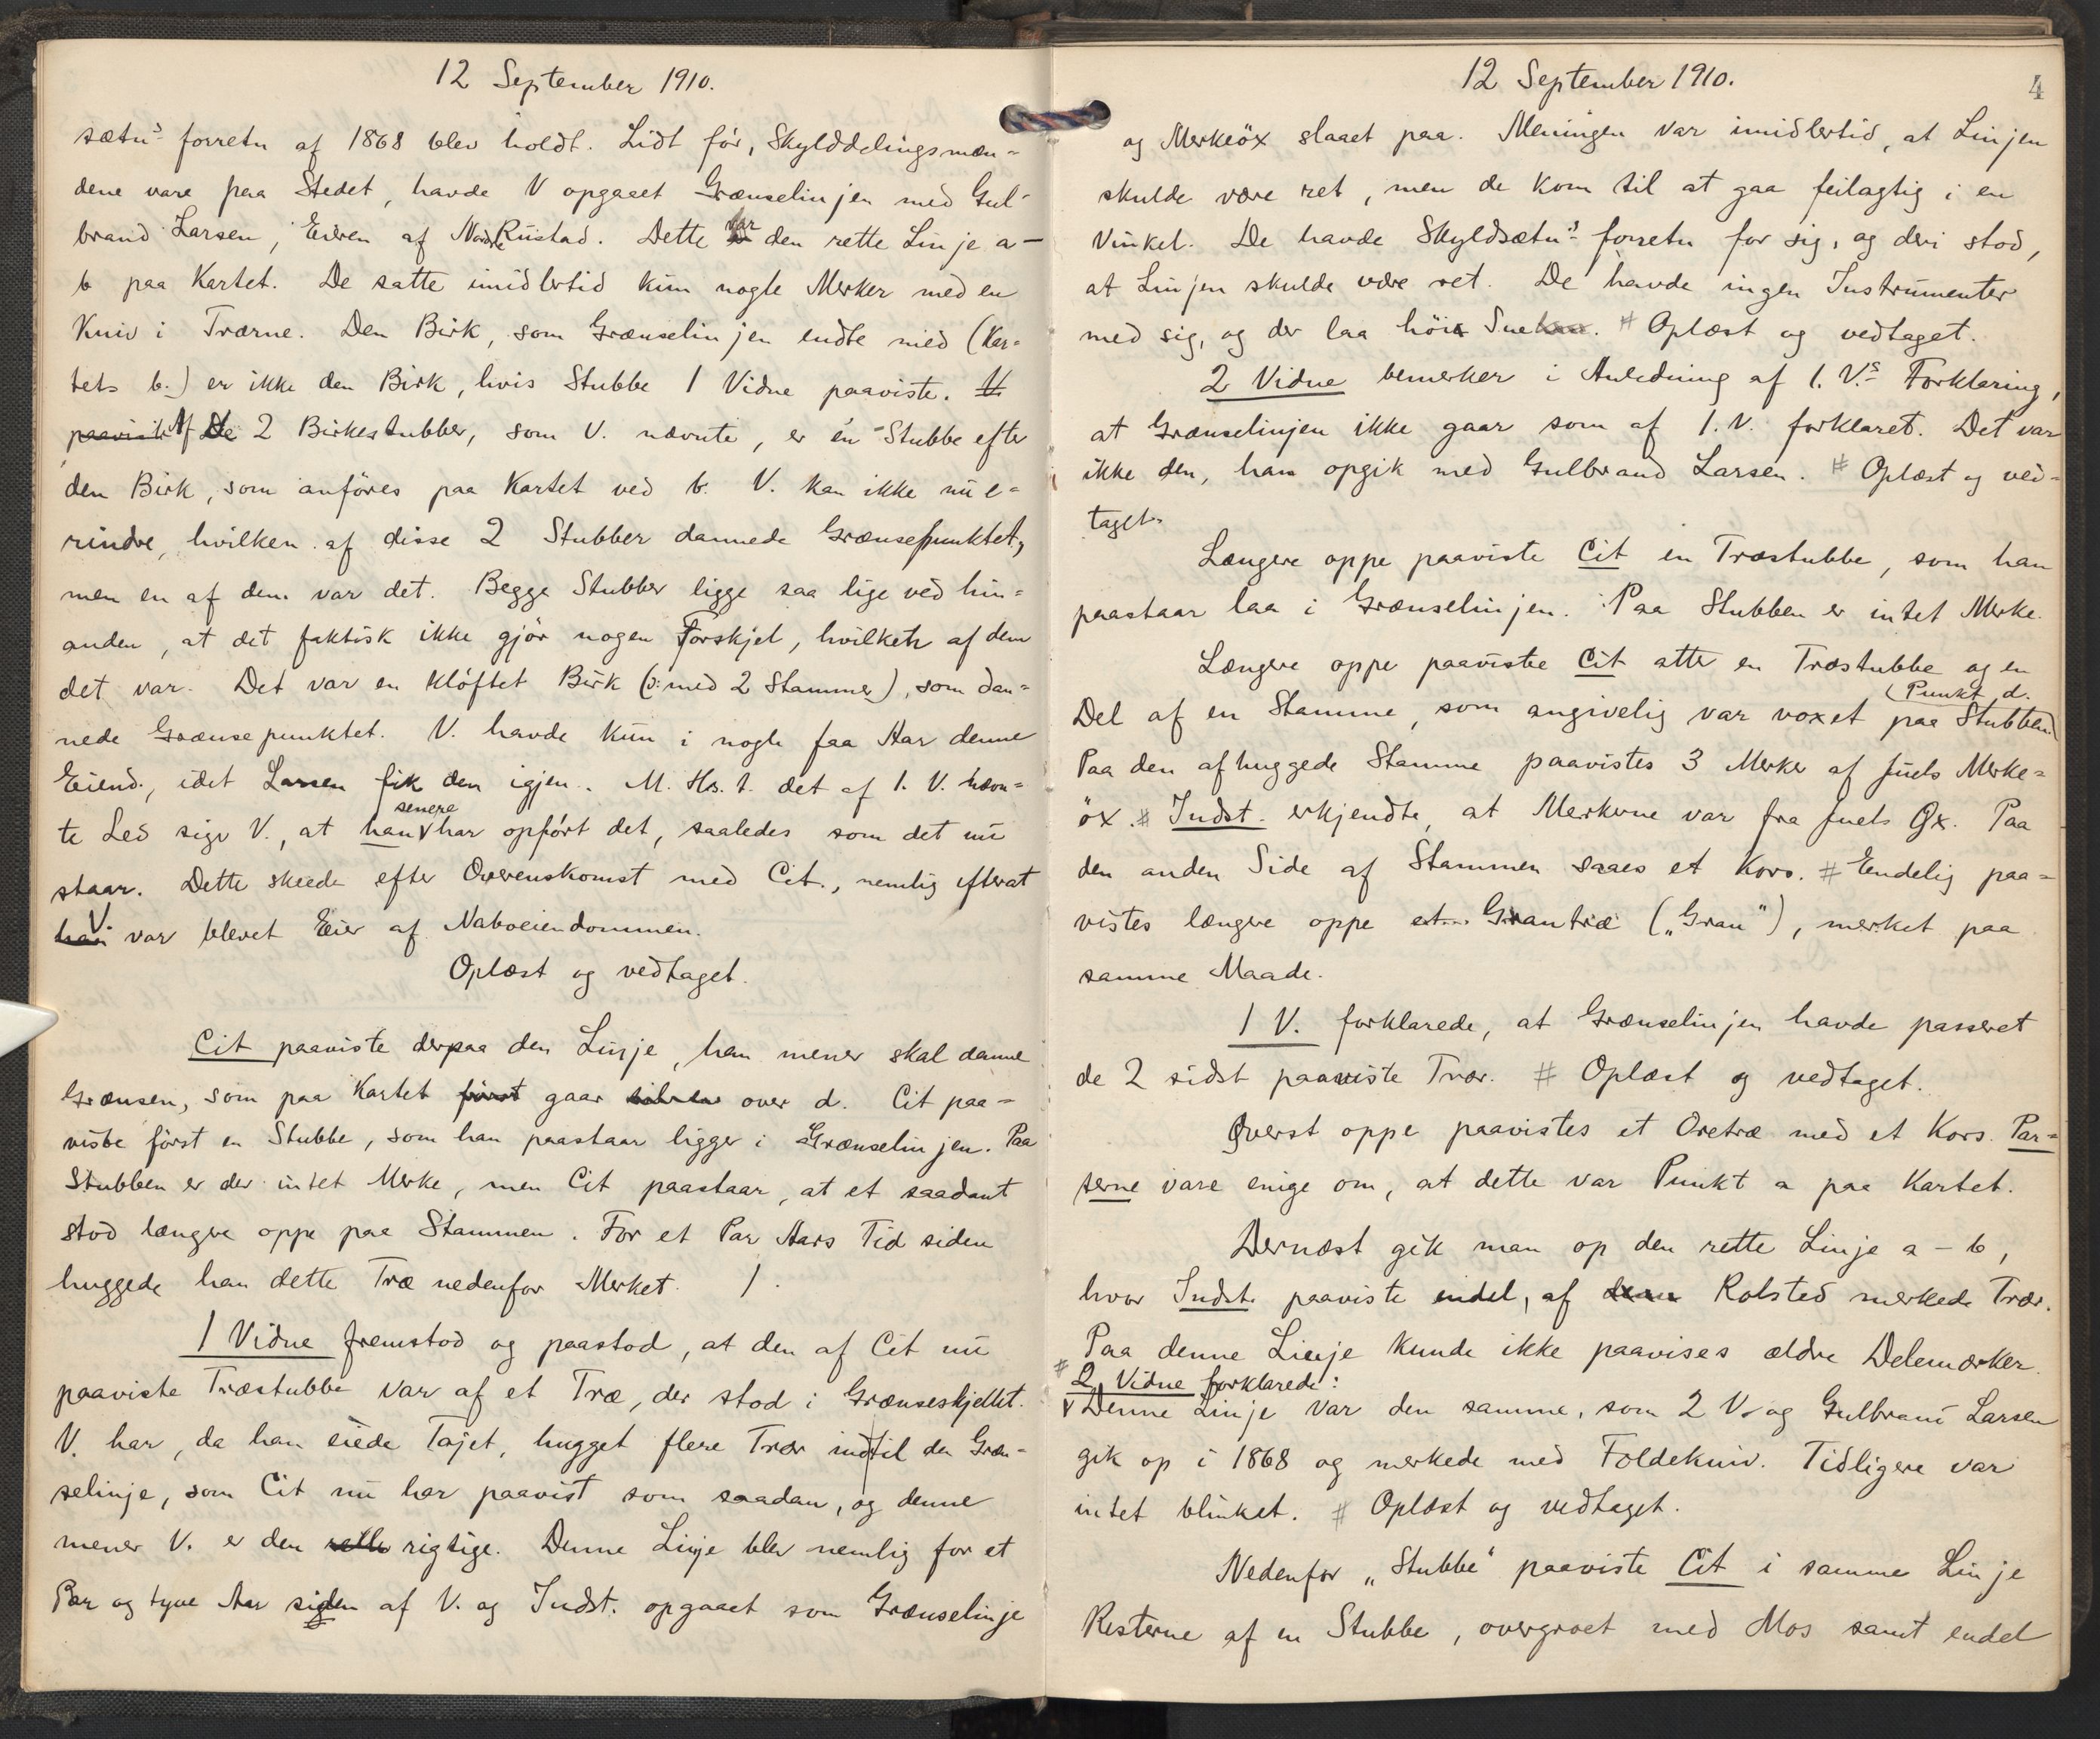 12 September 1910.
sætns forretn af 1868 blev holdt. Lidt før, Skylddelingsmæn=
dene vare paa Stedet, havde V opgaaet Grænselinjen med Gul=
brand Larsen, Eieren af Nordre Rustad. Dette var den rette Linje a-
b paa Kartet. De satte imidlertid kun nogle Merker med en
Kniv i Trærne. Den Birk, som Grænselinjen endte med (Kar=
tets b.) er ikke den Birk, hvis Stubbe 1 Vidne paaviste. V.
paaviste Af De 2 Birkestubber, som V. nævnte, er én Stubbe efter
den Birk, som anføres paa Kartet ved b. V. kan ikke nu e=
rindre, hvilken af disse 2 Stubber dannede Grænsepunktet,
men en af dem var det. Begge Stubber ligge saa lige ved hin=
anden, at det faktisk ikke gjør nogen Forskjel, hvilken af dem
det var. Det var en kløftet Birk (ɔ: med 2 Stammer), som dan=
nede Grænsepunktet. V. havde kun i nogle faa Aar denne
Eiend., idet Larsen fik den igjen. M. Hs. t. det af 1. V. nævn=
senere
te Led siger V., at han har opført det, saaledes som det nu
staar. Dette skeede efter Overenskomst med Cit., nemlig efterat
han V. var blevet Eier af Naboeiendommen.
Oplæst og vedtaget.
Cit paaviste derpaa den Linje, han mener skal danne
Grænsen, som paa Kartet først gaar over d. Cit paa=
viste først en Stubbe, som han paastaar ligger i Grænselinjen. Paa
Stubben er der intet Merke, men Cit paastaar, at et saadant
stod længere oppe paa Stammen. For et Par Aars Tid siden
huggede han dette Træ nedenfor Merket.
1 Vidne fremstod og paastod, at den af Cit nu
paaviste Træstubbe var af et Træ, der stod i Grænseskjellet.
V. har, da han eiede Tajet, hugget flere Trær indtil den Græn=
selinje, som Cit nu har paavist som saadan, og denne
mener V. er den rette rigtige. Denne Linje blev nemlig for et
Par og tyve Aar siden af V. og Indst. opgaaet som Grænselinje
12 September 1910.
4
og Merkeöx slaaet paa. Meningen var imidlertid, at Linjen
skulde være ret, men de kom til at gaa feilagtig i en
Vinkel. De havde Skyldsætns forretn for sig, og deri stod,
at Linjen skulde være ret. De havde ingen Instrumenter
med sig, og der laa höi Sne. # Oplæst og vedtaget.
2 Vidne bemerker i Anledning af 1. V.s Forklaring,
at Grænselinjen ikke gaar som af 1. V. forklaret. Det var
ikke den, han opgik med Gulbrand Larsen. # Oplæst og ved=
taget.
Længere oppe paaviste Cit en Træstubbe, som han
paastaar laa i Grænselinjen. Paa Stubben er intet Merke.
Længere oppe paaviste Cit atter en Træstubbe og en
(Punkt d.
Del af en Stamme, som angivelig var voxet paa Stubben
Paa den afhuggede Stamme paavistes 3 Merker af Juels Merke=
öx. # Indst. erkjendte, at Merkerne var fra Juels Øx. Paa
den anden Side af Stammen saaes et Kors. # Endelig paa=
vistes længere oppe et Grantræ („Gran"), merket paa
samme Maade.
1 V. forklarede, at Grænselinjen havde passeret
de 2 sidst paaviste Trær. # Oplæst og vedtaget.
Øverst oppe paavistes et Oretræ med et Kors. Par=
terne vare enige om, at dette var Punkt a paa Kartet.
Dernæst gik man op den rette Linje a - b,
hvor Indst. paaviste endel, af Rolsted merkede Trær.
Paa denne Linje kunde ikke paavises ældre Delemærker.
# 2 Vidne forklarede:
Denne Linje var den samme, som 2 V. og Gulbrand Larsen
gik op i 1868 og merkede med Foldekniv. Tidligere var
intet blinket. # Oplæst og vedtaget.
Nedenfor „Stubbe" paaviste Cit i samme Linje
Resterne af en Stubbe, overgroet med Mos samt endel